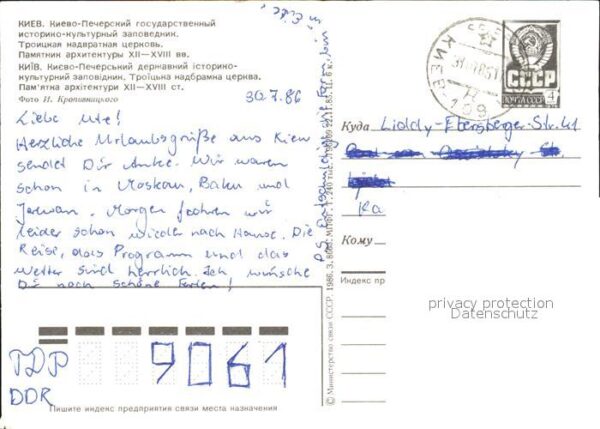 КИЕВ. Киево-Печерский государственный
историко-культурный заповедник.
Троицкая надвратная церковь.
Памятник архитектуры XII—XVIII вв.
КИЇВ. Києво-Печерський державний історико-
культурний заповідник. Троїцька надбрамна церква.
Пам'ятка архітектури XII—XVIII ст.
Фото И. Кропивницкого
30.7.86
Liebe Ute!
Herzliche Urlaubsgrüße aus Kiew
sendet Dir Anke. Wir waren
schon in Moskau, Baku und
Jerewan. Morgen fahren wir
leider schon wieder nach Hause. Die
Reise, das Programm und das
Wetter sind herrlich. Ich wünsche
Dir noch schöne Ferien!
PS. Entschuldige die Form
© Министерство связи СССР. 1986.
КИЕВ
ПОЧТА СССР
4
Куда Liddy-Ebersberger-Str. 41
Кому
Индекс пр
privacy protection
Datenschutz
9061
DDR
Пишите индекс предприятия связи места назначения